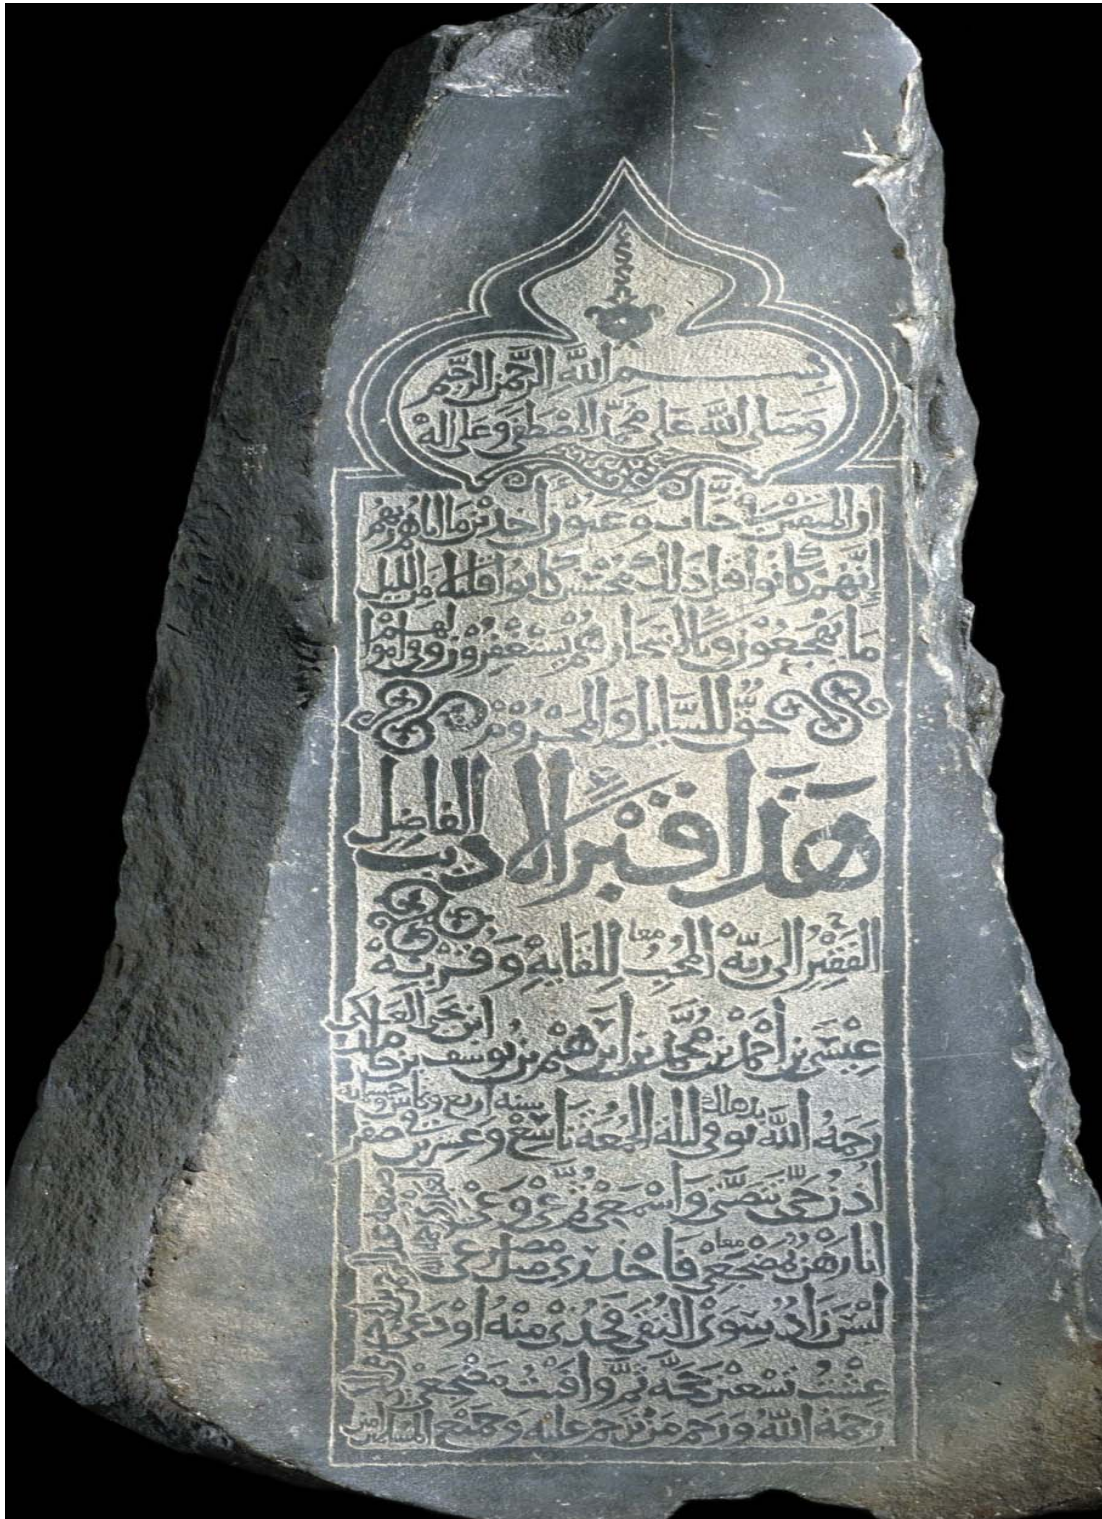 بسم الله الرحمن الرحيم
وصلى الله على محمد المصطفى وعلى اله
ان المتقين في جنات وعيون اخذين ما اتاهم ربهم
إنهم كانوا قبل ذلك محسنين كانوا قليلا من الليل
ما يهجعون وبالاسحار هم يستغفرون وفي اموالهم
حق للسايل والمحروم
هذا قبر الاديب الفاضل
الفقير الى ربه المحب للقايه وقربه معا
عيسى بن احمد بن محمد بن ابرهيم بن يوسف بن ابن يحيى
رحمه الله توفي ليلة الجمعة تاسع وعشرين صفر سنة اربع
واسمعي ثم عي وعي
انا رهن بمضجعي فاحذري مثل مصرعي
ليس زاد سوى التقى فخذي منه او دعي
عشت تسعين حجة ثم وافيت مضجعي
رحمه الله ورحم من ترحم عليه وجميع المسلمين امين